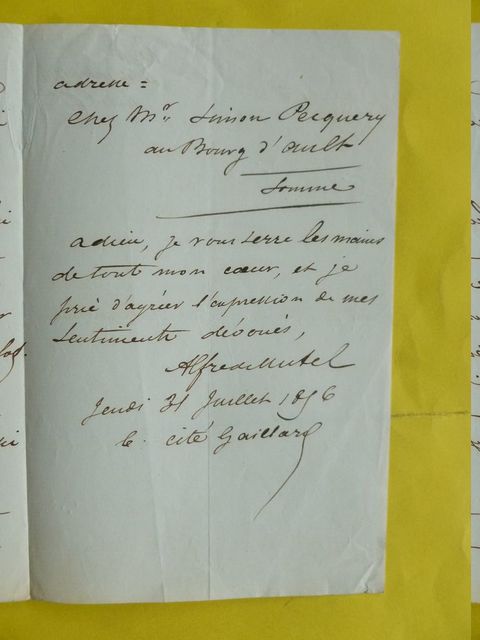 adresse =
Chez Mr. Simon Pecquery
au Bourg d'ault
Somme
adieu, je vous serre les mains
de tout mon cœur, et je
prie d'agréer l'expression de mes
sentiments dévoués,
Alfred Mutel
Jeudi 31 Juillet 1856
6. cité Gaillard